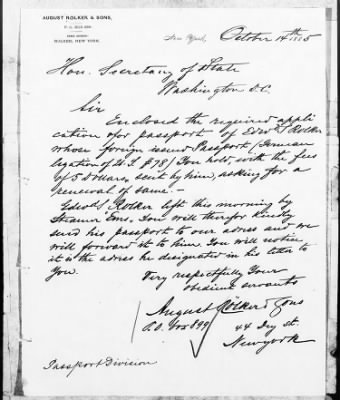 AUGUST ROLKER & SONS,
NEW YORK.
New York, October 14th 1885
Hon. Secretary of State
Washington D.C.
Sir
Enclosed the required appli
cation for passport of Edwd. S Rolker
whose foreign issued Passport, (German
legation of U. S. #78) You hold, with the fees
of 5 Dollars, sent by him, asking for a
renewal of same.—
Edwd S Rolker left this morning by
Steamer Ems. You will therefor kindly
send his passport to our adress and we
will forward it to him. You will notice
it is the adress he designated in his letter to
You.
Very respectfully Your
obedient servants
August Rölker & Sons
P.O. Box 899 44 Dey st.
New york
Passport Division